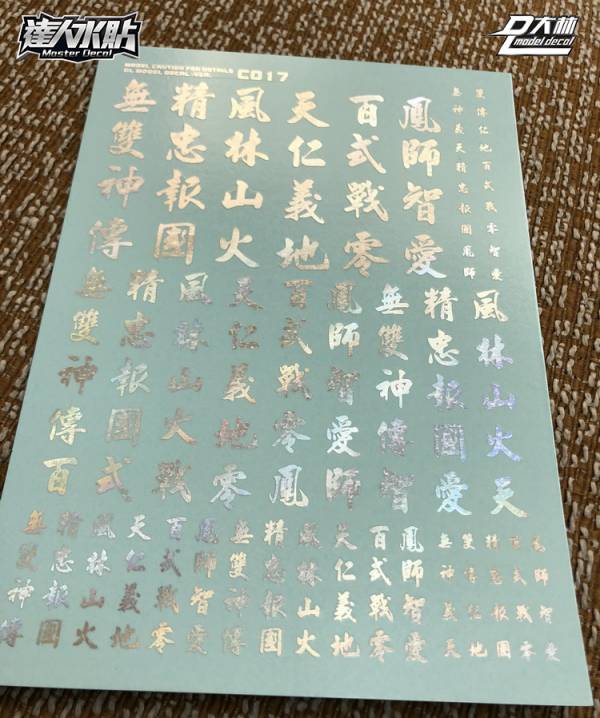 達人水貼
Master Decal
DL大林
model decal
MODEL CAUTION FOR DETAILS
DL MODEL DECAL.VER.
C017
無雙神傳
精忠報國
風林山火
天仁義地
百式戰零
鳳師智愛
無神義天精忠報國鳳師
雙傳仁地百式戰零智愛
無雙神傳百
精忠報國式
風林山火戰
天仁義地零
百式戰零鳳
鳳師智愛師
無雙神傳智
精忠報國愛
風林山火天
無雙神傳
精忠報國
風林山火
天仁義地
百式戰零
鳳師智愛
無雙神傳
精忠報國
風林山火
天仁義地
百式戰零
鳳師智愛
無神義天
雙傳仁地
精忠報國
百式戰零
鳳師智愛